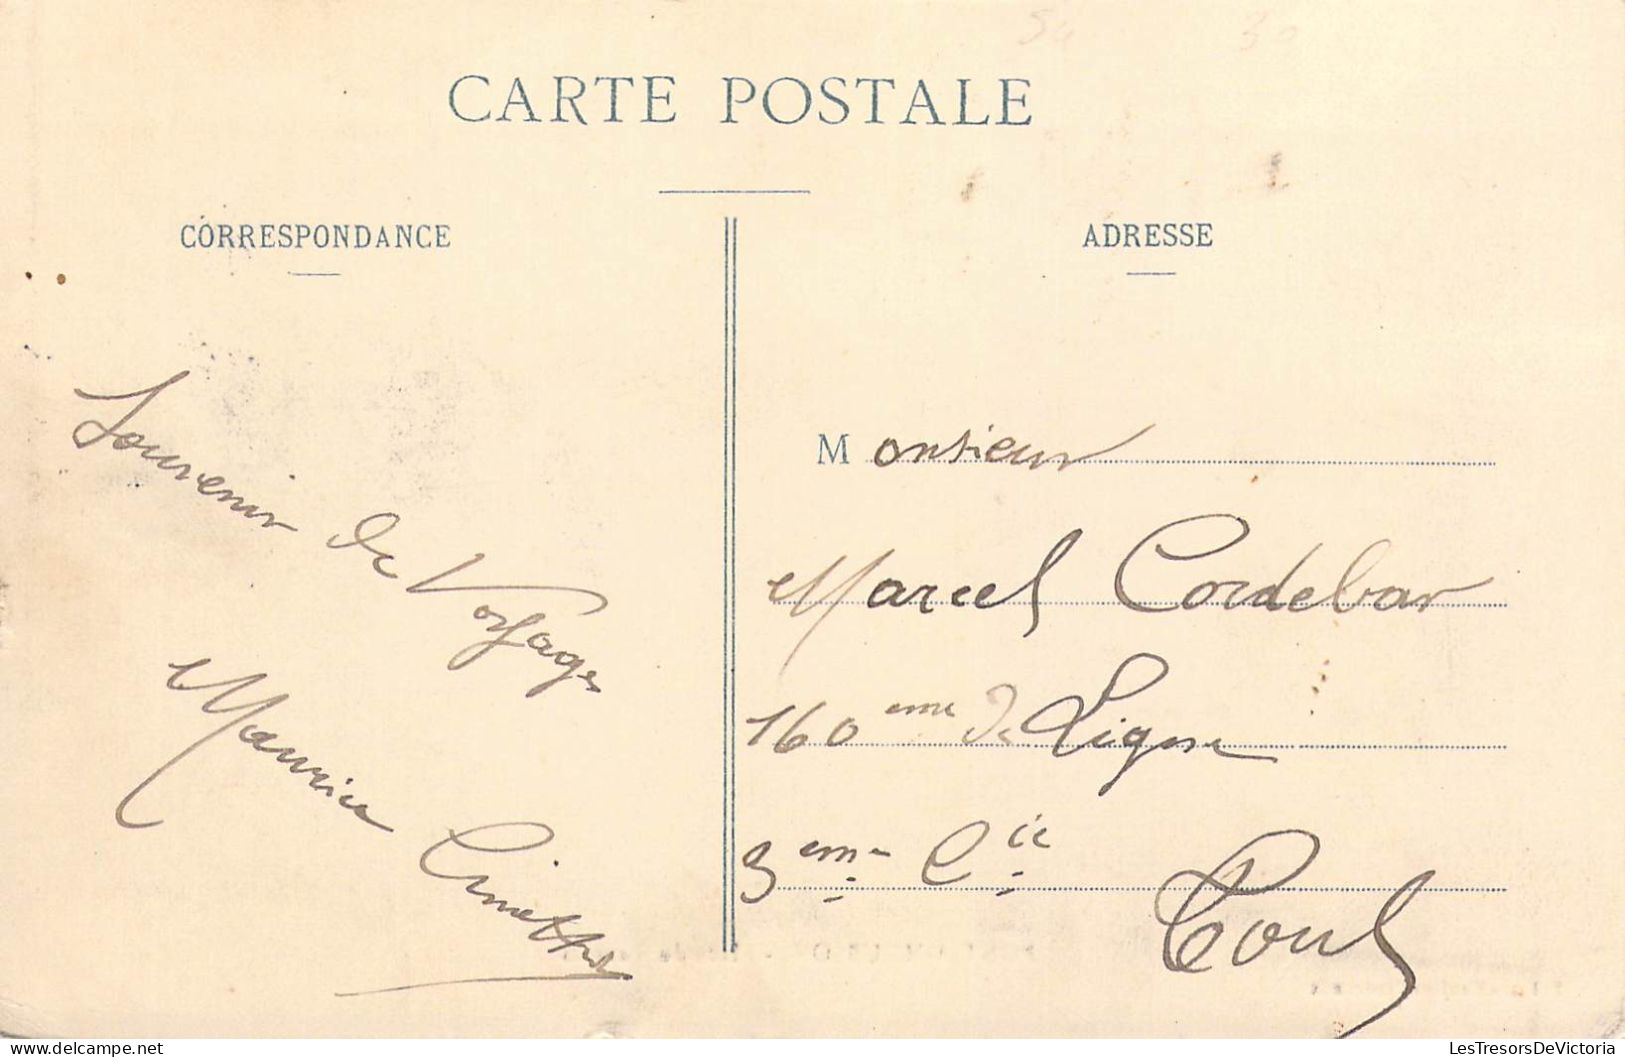 CARTE POSTALE
CORRESPONDANCE
ADRESSE
Souvenir de Voyages
Maurice
Monsieur
Marcel Cordebar
160eme de Ligne
3eme Cie
Toul
LesTresorsDeVictoria